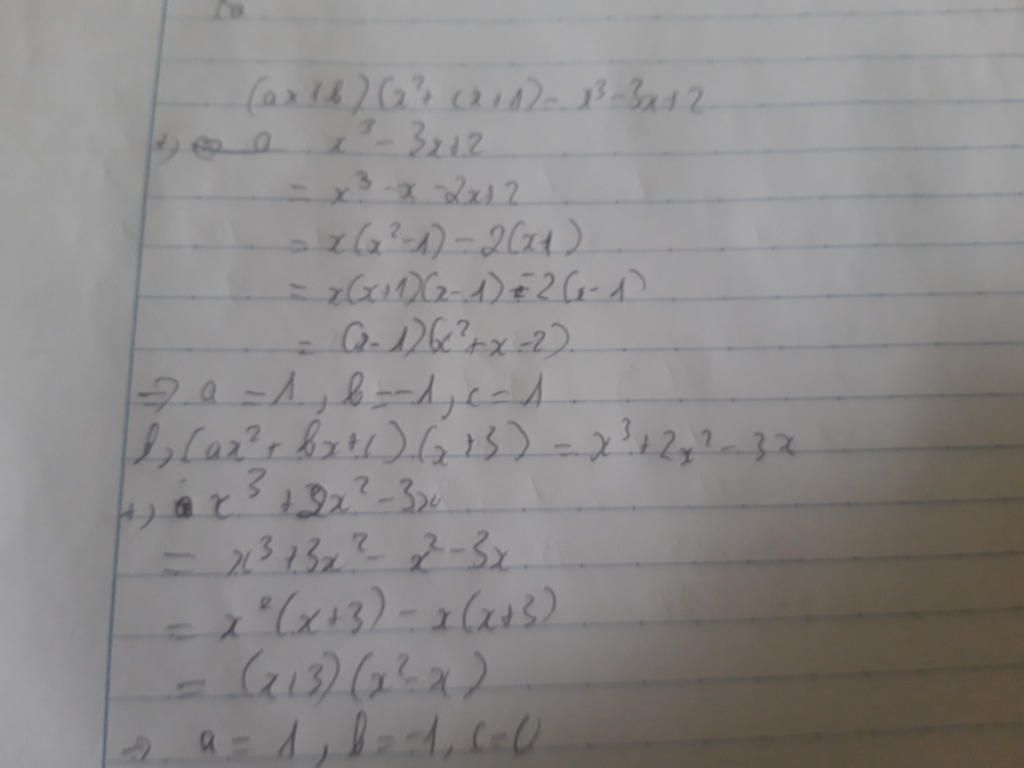 (ax+b)(x²+cx+1)= x³-3x+2
x³-3x+2
= x³-x-2x+2
= x(x²-1)-2(x1)
= x(x+1)(x-1)-2(x-1)
= (x-1)(x²+x-2)
=> a=1, b=-1, c=1
b, (ax²+bx+c)(x+3) = x³+2x²-3x
+, x³+2x²-3x
= x³+3x²-x²-3x
= x²(x+3)-x(x+3)
= (x+3)(x²-x)
=> a=1, b=-1, c=0